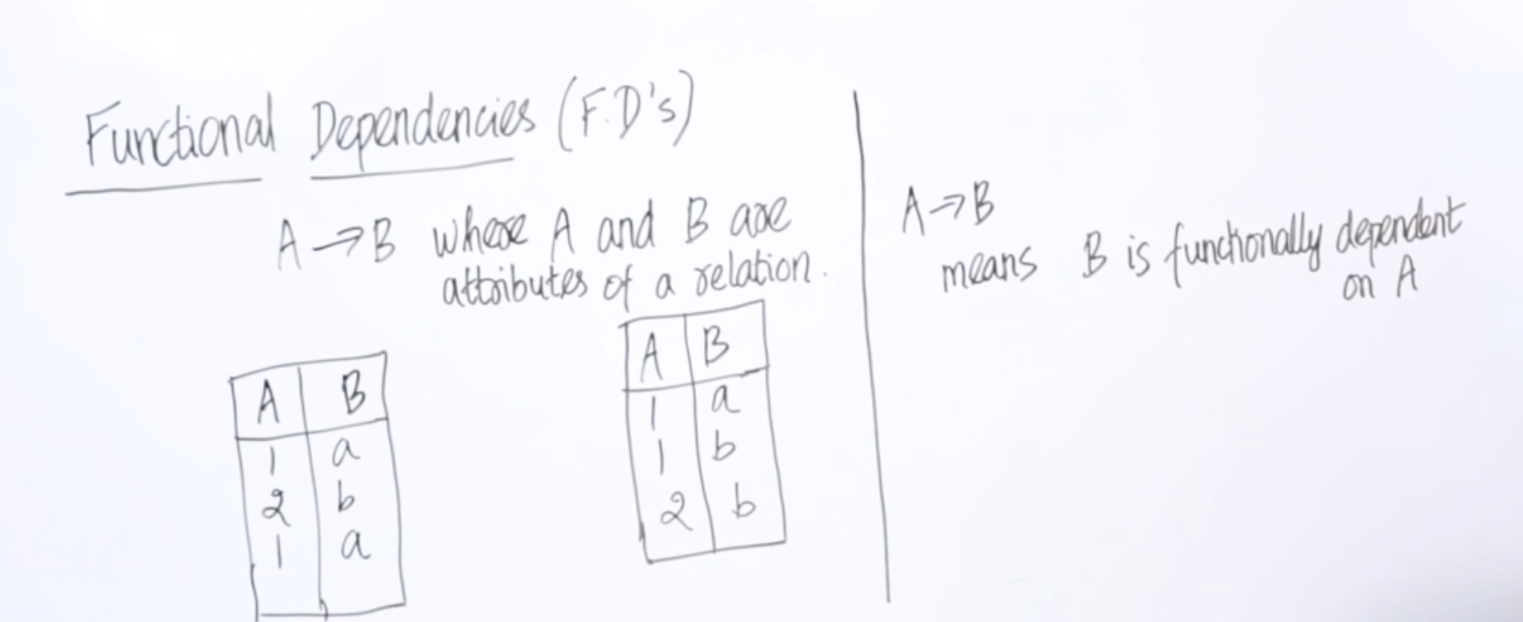 Functional Dependencies (F.D's)
A → B where A and B are
attributes of a relation.
A B
1 a
2 b
1 a
A B
1 a
1 b
2 b
A → B
means B is functionally dependent
on A